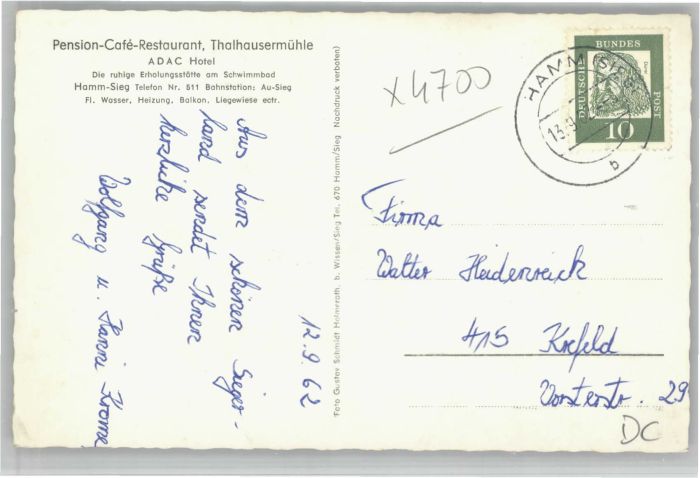 Pension-Café-Restaurant, Thalhausermühle
ADAC Hotel
Die ruhige Erholungsstätte am Schwimmbad
Hamm-Sieg Telefon Nr. 511 Bahnstation: Au-Sieg
Fl. Wasser, Heizung, Balkon, Liegewiese ectr.
12.9.62
Aus dem schönen Sieger-
land sendet Ihnen
herzliche Grüße
Wolfgang u. Hanni Krome
Foto Gustav Schmidt Holmrrath, b. Wissen/Sieg Tel. 670 Hamm/Sieg Nachdruck verboten)
x4700
HAMM (SIEG)
13.9.62
b
DEUTSCHE
BUNDES
POST
10
Firma
Walter Heidenreich
415 Krefeld
Vorsterstr. 29
DC